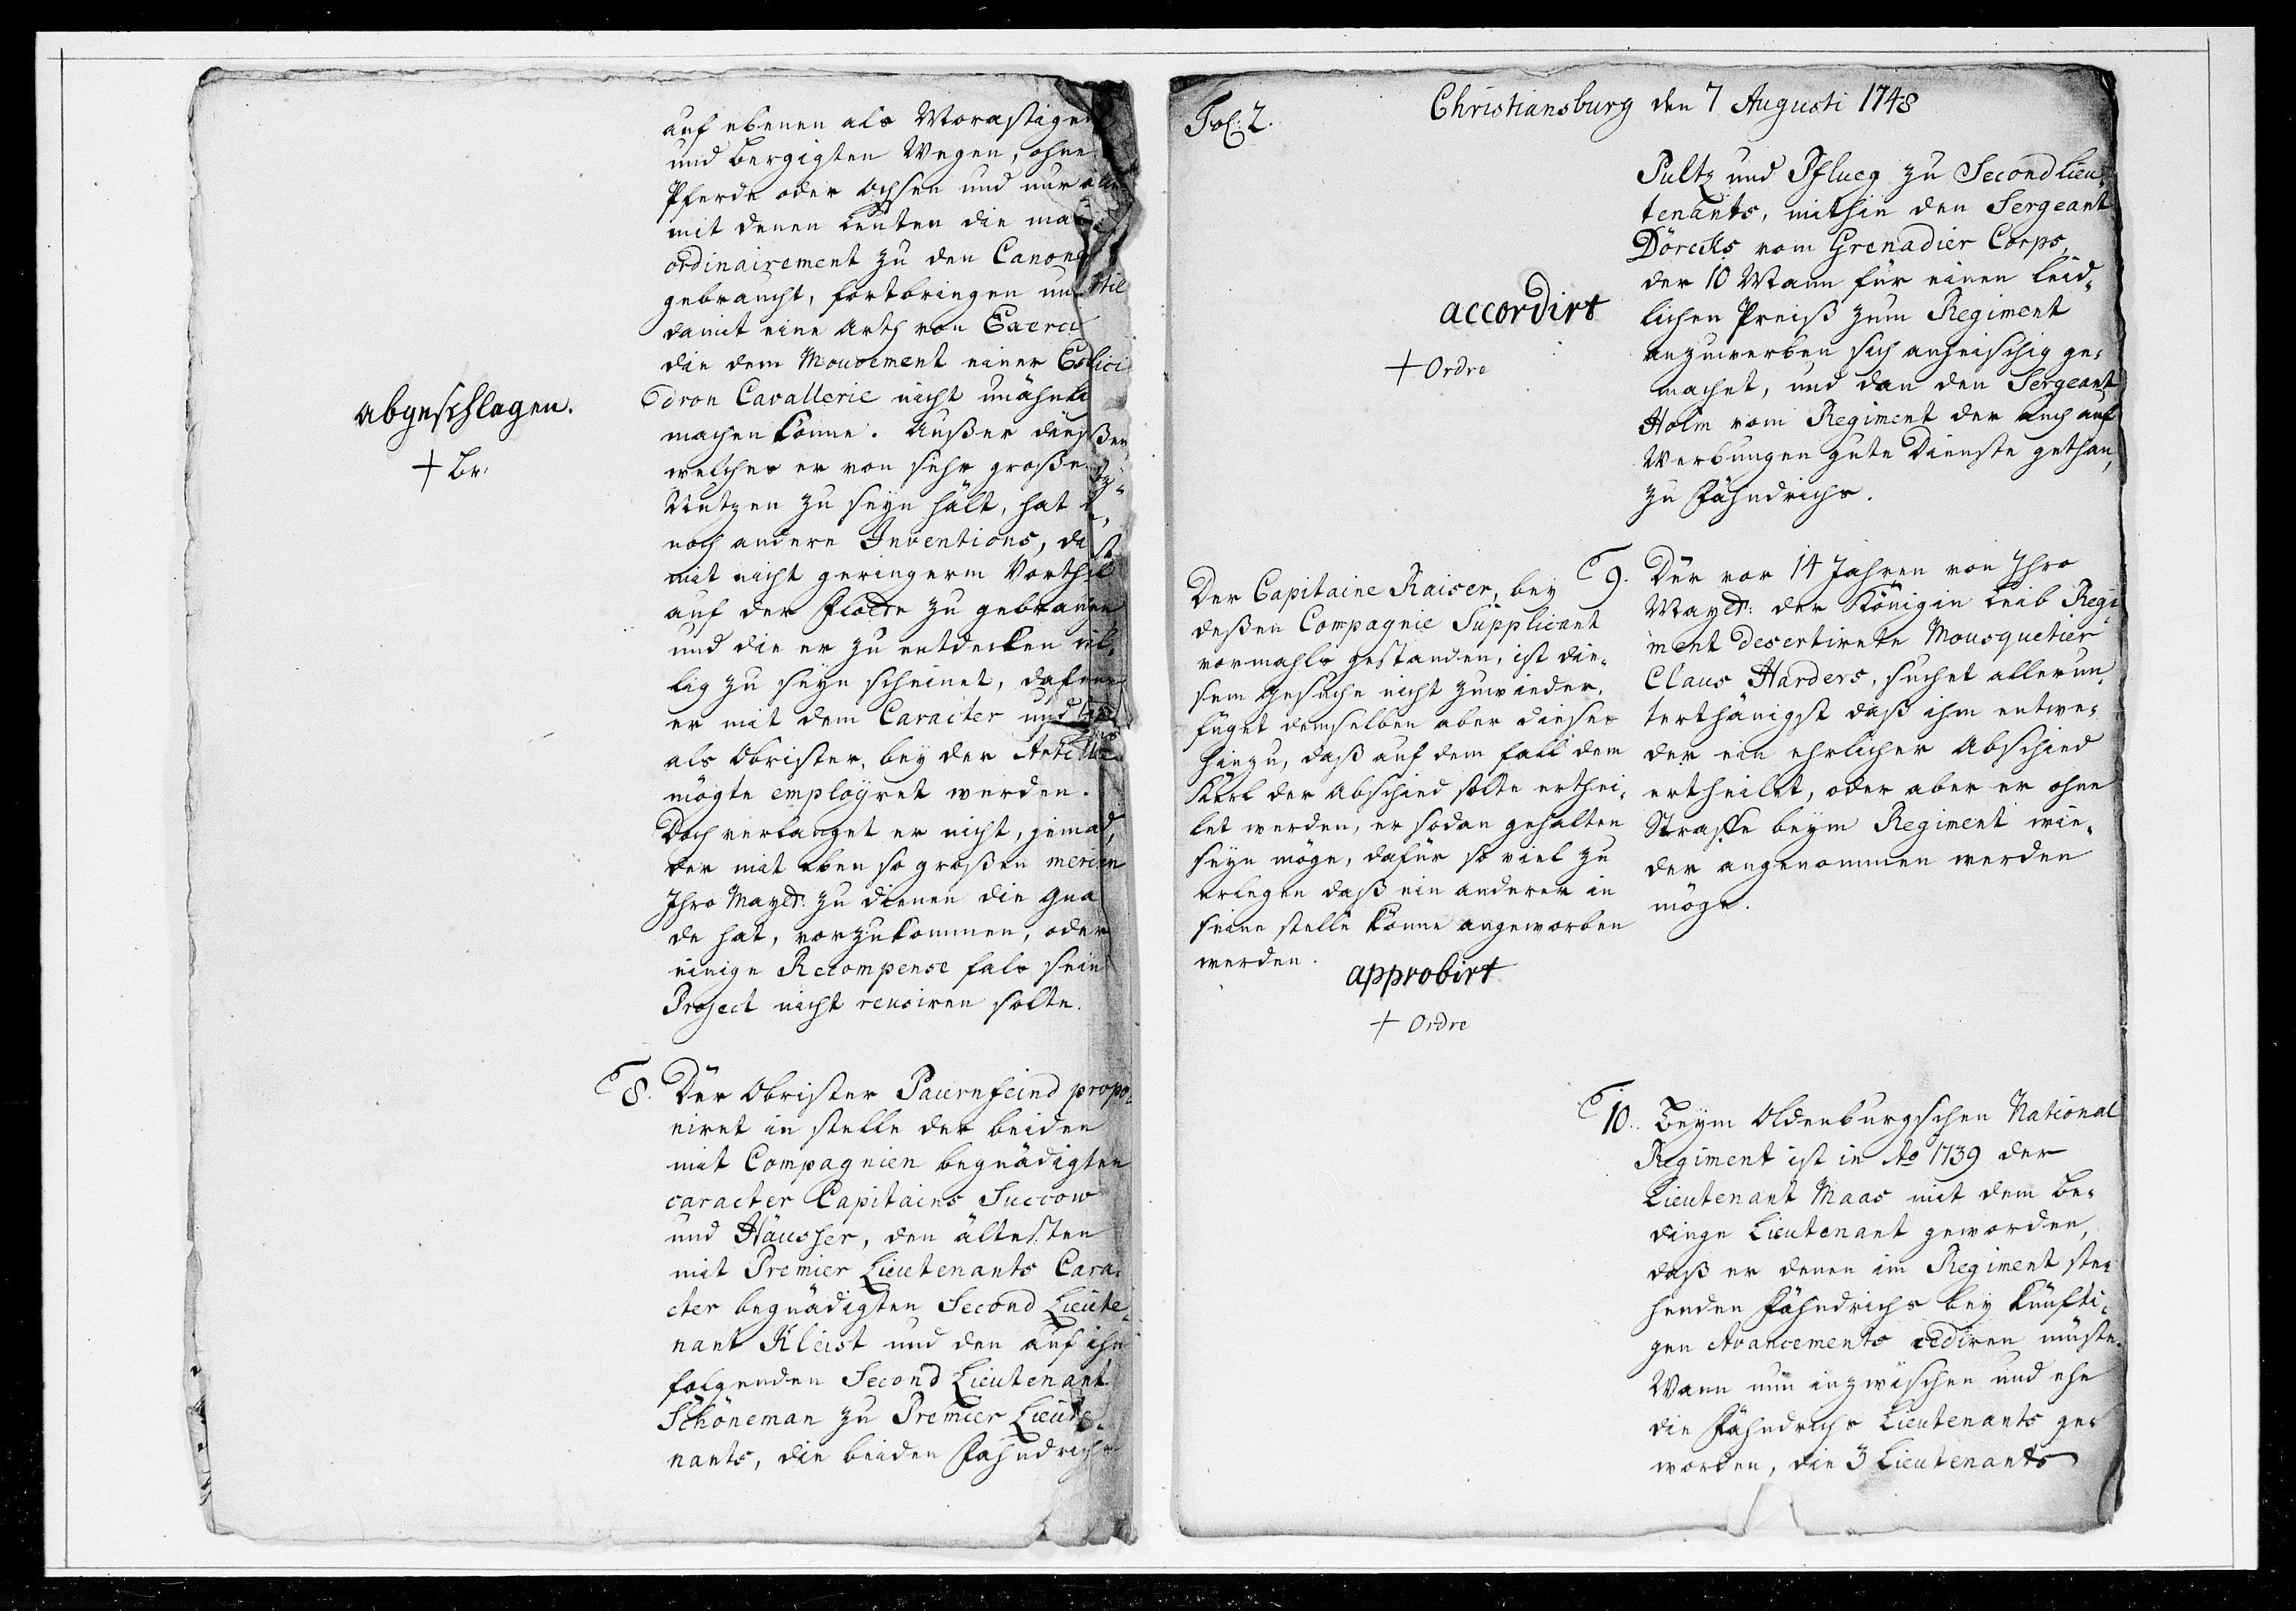 auf ebenen als Morastigen
und bergigten Wegen, ohne
Pferde oder Ochsen und nur
mit denen Leuten die ma
ordinairement zu den Canonen
gebraucht, fortbringen un
damit eine Arth von Exerci
die dem Mouvement einer Es
dron Cavallerie nicht unähnli
machen könne. Außer dießen
welches er von sehr großen
Nutzen zu seyn hält, hat
noch andere Inventions, di
mit nicht geringerm Vortheil
auf der Flotte zu gebrauchen
und die er zu entdecken wil-
lig zu seyn scheinet, daferne
er mit dem Caracter und
als Obrister, bey der Artille
mögte employret werden.
Doch verlanget er nicht, jemad,
der mit eben so großen meriten
Ihro Mayts: zu dienen die Gna
de hat, vorzukommen, oder
einige Recompense fals sein
Project nicht reusiren solte.
abgeschlagen.
+ Br.
8. Der Obrister Paurnfeind propo-
niret in stelle der beiden
mit Compagnien begnädigten
caracter Capitains Succow
und Häusser, den ältesten
mit Premier Lieutenants Cara-
cter begnädigten Second Lieute-
nant Kleist und den auf ihn
folgenden Second Lieutenant
Schöneman zu Premier Lieute-
nants, die beiden Fähndrichs
Fol: 2.
Christiansburg den 7 Augusti 1748
Pultz und Pflueg zu Second Lieu-
tenants, mithin den Sergeant
Dörcks vom Grenadier Corps,
der 10 Mann für einen leid-
lichen Preiß zum Regiment
anzuwerben sich anheischig ge-
machet, und dan den Sergeant
Holm vom Regiment der auch auf
Werbungen gute Dienste gethan,
zu Fähndrichs.
accordirt
+ Ordre
9. Der vor 14 Jahren von Ihro
Mayts: der Königin Leib Regi-
ment desertirete Mousquetier
Claus Harders, suchet allerun-
terthänigst daß ihm entwe-
der ein ehrlicher Abschied
ertheilet, oder aber er ohne
Straffe beym Regiment wie-
der angenommen werden
möge.
Der Capitaine Kaiser, bey
deßen Compagnie Supplicant
vormahls gestanden, ist die-
sem Gesuche nicht zuwieder,
füget demselben aber dieses
hinzu, daß auf dem fall dem
Kerl der Abschied solte erthei-
let werden, er sodan gehalten
seyn möge, dafür so viel zu
erlegen daß ein anderer in
seine stelle könne angeworben
werden.
approbirt
+ Ordre
10. Beym Oldenburgschen National
Regiment ist in Ao 1739 der
Lieutenant Maas mit dem be-
dinge Lieutenant geworden,
daß er denen im Regiment ste-
henden Fähndrichs bey künfti-
gen Avancements cediren müste.
Wann nun inzwischen und ehe
die Fähndrichs Lieutenants ge-
worden, die 3 Lieutenants